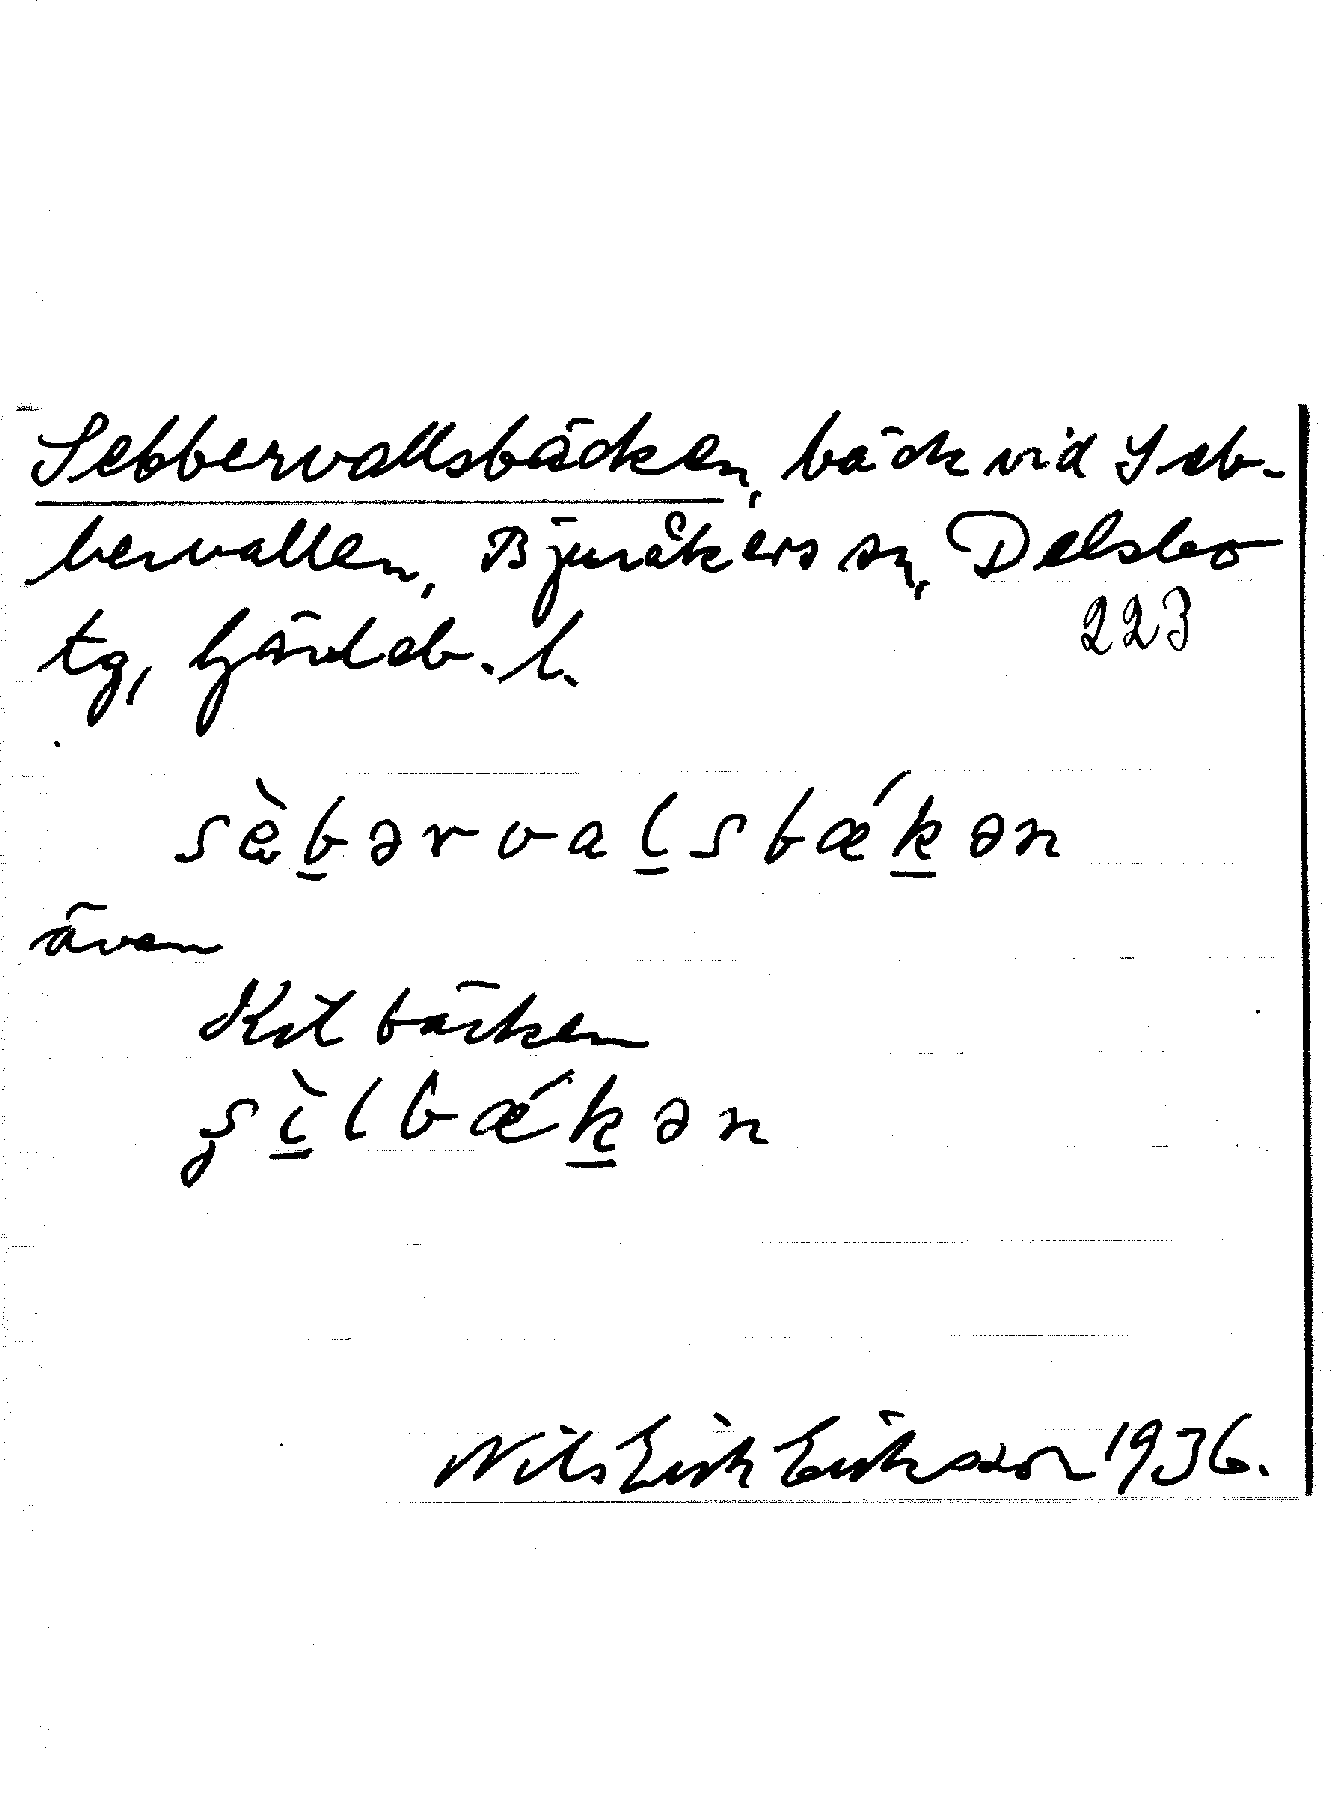 Sebbervallsbäcken, bäck vid Seb-
bervallen, Bjuråkers sn, Delsbo
tg, Gävleb. l.
223
sæ̀b̲ərval̲sbǽk̲ən
även
Kilbäcken
ʂì̲lbǽk̲ən
Nils Erik Eriksson 1936.